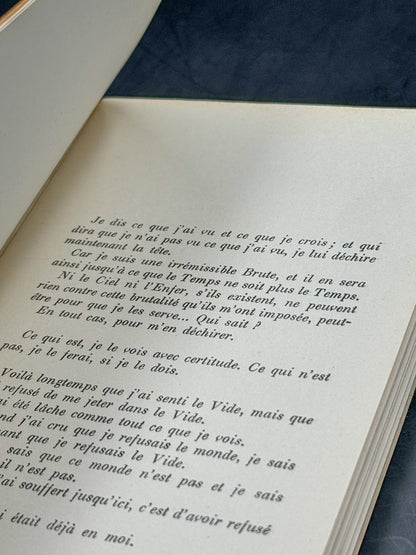 Je dis ce que j'ai vu et ce que je crois ; et qui
dira que je n'ai pas vu ce que j'ai vu, je lui déchire
maintenant la tête.
Car je suis une irrémissible Brute, et il en sera
ainsi jusqu'à ce que le Temps ne soit plus le Temps.
Ni le Ciel ni l'Enfer, s'ils existent, ne peuvent
rien contre cette brutalité qu'ils m'ont imposée, peut-
être pour que je les serve... Qui sait ?
En tout cas, pour m'en déchirer.
Ce qui est, je le vois avec certitude. Ce qui n'est
pas, je le ferai, si je le dois.
Voilà longtemps que j'ai senti le Vide, mais que
refusé de me jeter dans le Vide.
été lâche comme tout ce que je vois.
j'ai cru que je refusais le monde, je sais
que je refusais le Vide.
sais que ce monde n'est pas et je sais
il n'est pas.
j'ai souffert jusqu'ici, c'est d'avoir refusé
était déjà en moi.